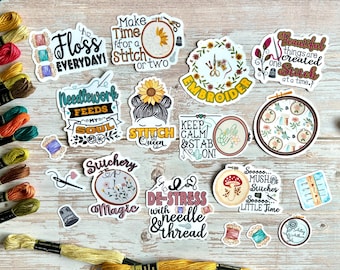 Floss
EVERYDAY!
Make
Time
for a
Stitch
or two
EMBROIDER
Beautiful
Things are
created
one
Stitch
at a time.
Needlework
FEEDS
MY
SOUL
STITCH
Queen
KEEP
CALM &
STAB
ON!
Stitchery
Magic
DE-STRESS
with
needle
&
thread
Soooo
MUSH
Stitches
Soooo
LITTLE Time